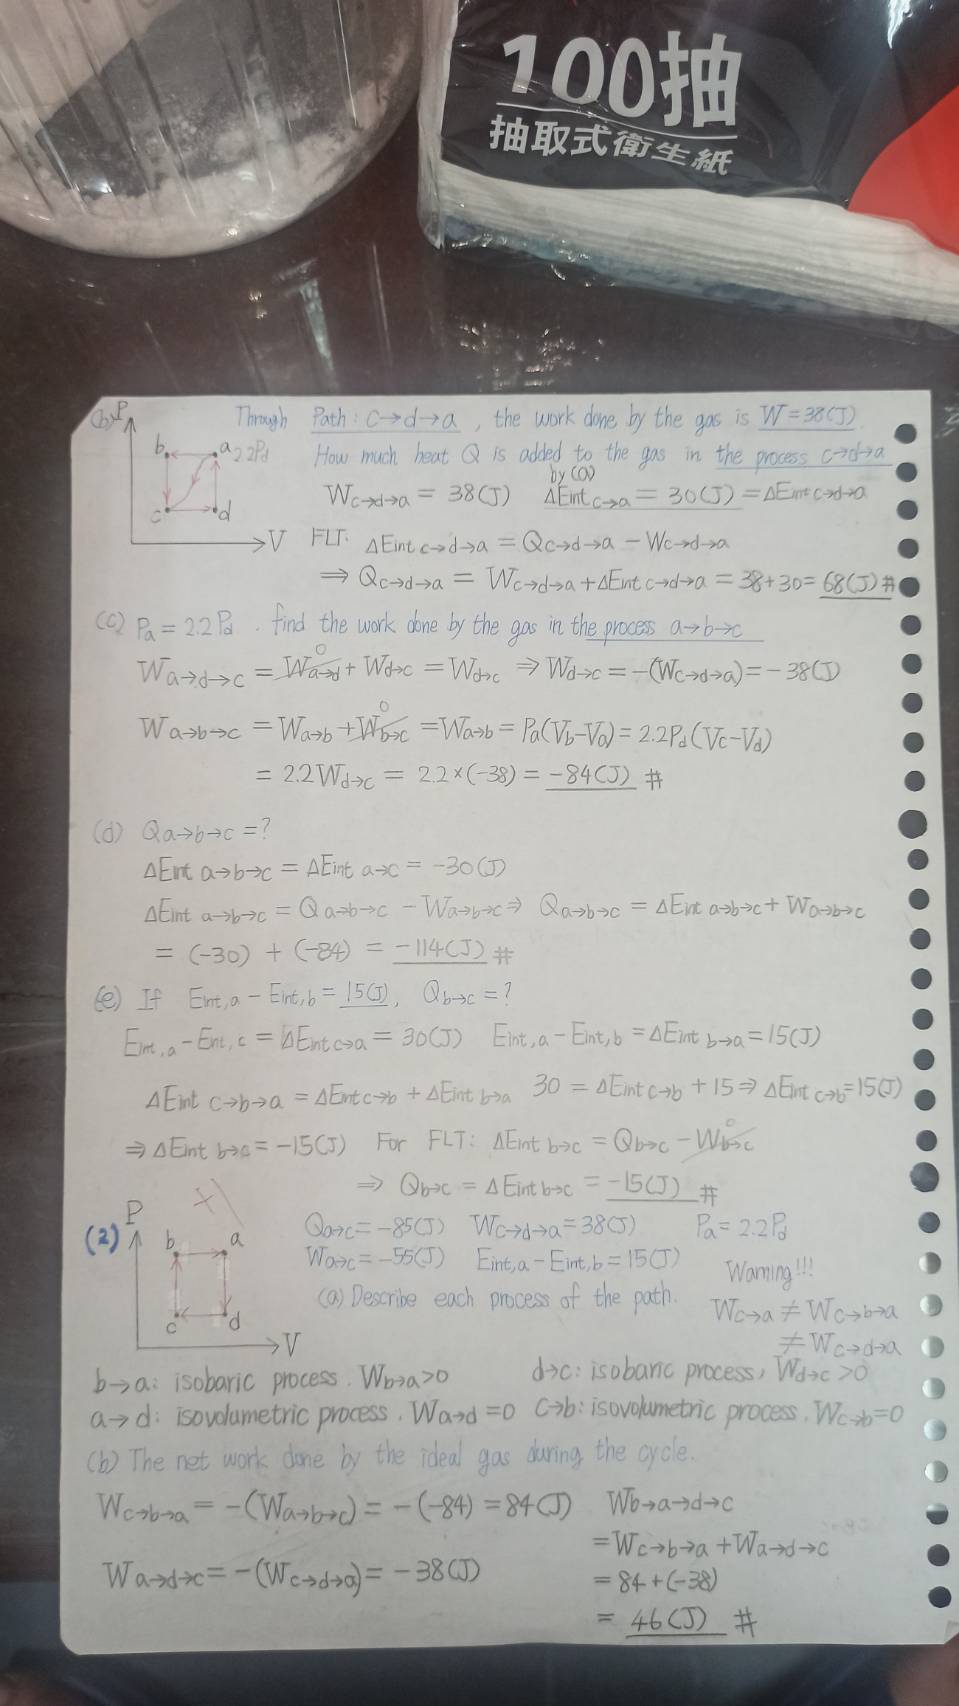 100抽
抽取式衛生紙
(b) P Through Path: c→d→a, the work done by the gas is W=38(J)
b a 2.2Pd How much heat Q is added to the gas in the process c→d→a
c d V
Wc→d→a = 38(J) by (a) ΔEint c→a = 30(J) = ΔEint c→d→a
FLT: ΔEint c→d→a = Qc→d→a - Wc→d→a
⇒ Qc→d→a = Wc→d→a + ΔEint c→d→a = 38+30 = 68(J) #
(c) Pa = 2.2Pd. find the work done by the gas in the process a→b→c
Wa→d→c = Wa→d 0 + Wd→c = Wd→c ⇒ Wd→c = -(Wc→d→a) = -38(J)
Wa→b→c = Wa→b + Wb→c 0 = Wa→b = Pa(Vb-Va) = 2.2Pd(Vc-Vd)
= 2.2Wd→c = 2.2×(-38) = -84(J) #
(d) Qa→b→c = ?
ΔEint a→b→c = ΔEint a→c = -30(J)
ΔEint a→b→c = Qa→b→c - Wa→b→c ⇒ Qa→b→c = ΔEint a→b→c + Wa→b→c
= (-30) + (-84) = -114(J) #
(e) If Eint,a - Eint,b = 15(J), Qb→c = ?
Eint,a - Eint,c = ΔEint c→a = 30(J) Eint,a - Eint,b = ΔEint b→a = 15(J)
ΔEint c→b→a = ΔEint c→b + ΔEint b→a 30 = ΔEint c→b + 15 ⇒ ΔEint c→b = 15(J)
⇒ ΔEint b→c = -15(J) For FLT: ΔEint b→c = Qb→c - Wb→c 0
⇒ Qb→c = ΔEint b→c = -15(J) #
(2) P b a c d V
Qa→c = -85(J) Wc→d→a = 38(J) Pa = 2.2Pd
Wa→c = -55(J) Eint,a - Eint,b = 15(J) Warning!!!
(a) Describe each process of the path. Wc→a ≠ Wc→b→a
≠ Wc→d→a
b→a: isobaric process. Wb→a>0 d→c: isobaric process, Wd→c >0
a→d: isovolumetric process. Wa→d =0 c→b: isovolumetric process. Wc→b=0
(b) The net work done by the ideal gas during the cycle.
Wc→b→a = -(Wa→b→c) = -(-84) = 84(J) Wb→a→d→c
= Wc→b→a + Wa→d→c
Wa→d→c = -(Wc→d→a) = -38(J) = 84+(-38)
= 46(J) #